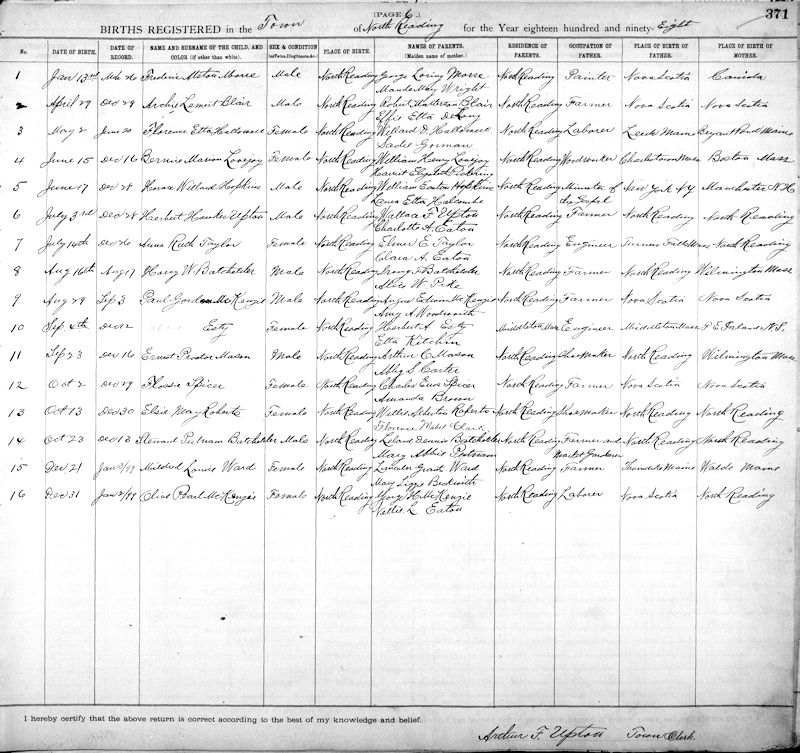 (PAGE 6.)
371
BIRTHS REGISTERED in the Town of North Reading for the Year eighteen hundred and ninety-Eight
No. DATE OF BIRTH. DATE OF RECORD. NAME AND SURNAME OF THE CHILD, AND COLOR (if other than white). SEX & CONDITION PLACE OF BIRTH. NAMES OF PARENTS. (Maiden name of mother.) RESIDENCE OF PARENTS. OCCUPATION OF FATHER. PLACE OF BIRTH OF FATHER. PLACE OF BIRTH OF MOTHER.
1 Jan 13 Male North Reading George Loring Morse North Reading Painter Nova Scotia
Wright
2 April 29 Dec 29 Archie Blair Male North Reading Robert Blair North Reading Farmer Nova Scotia Nova Scotia
Effie Etta DeLong
3 May 2 June 20 Florence Etta Female North Reading Willard North Reading Laborer Maine Bryant Pond Maine
Sadie Gorman
4 June 15 Dec 16 Bernice Marion Lovejoy Female North Reading William Henry Lovejoy North Reading Woodworker Charlestown Mass Boston Mass
Harriet Elizabeth Pickering
5 June 17 Dec 28 Horace Willard Hopkins Male North Reading William Eaton Hopkins North Reading Minister of New York NY Manchester N.H
Lena Etta Halcombe the Gospel
6 July 3rd Dec 28 Herbert Upton Male North Reading Wallace F Upton North Reading Farmer North Reading North Reading
Charlotte A. Eaton
7 July 14th Dec 26 Anna Ruth Taylor Female North Reading Elmer E. Taylor North Reading Engineer Turners Falls Mass North Reading
Clara A. Eaton
8 Aug 16th Aug 17 Harry W. Batchelder Male North Reading Irving F Batchelder North Reading Farmer North Reading Wilmington Mass
Alice W. Pike
9 Aug 29 Sep 3 Paul Gordon McKenzie Male North Reading Angus Edwin McKenzie North Reading Farmer Nova Scotia Nova Scotia
Amy A Woodworth
10 Sep 4th Dec 12 Esty Female North Reading Herbert A Esty Middleton Mass Engineer Middleton Mass P E Island N.S.
Etta Kitchin
11 Sep 23 Dec 16 Ernest Proctor Mason Male North Reading Arthur C. Mason North Reading Shoemaker North Reading Wilmington Mass
Abby S. Carter
12 Oct 2 Dec 29 Flossie Spicer Female North Reading Charles Spicer North Reading Farmer Nova Scotia Nova Scotia
Amanda Brown
13 Oct 13 Dec 30 Elsie May Roberts Female North Reading Roberts North Reading Shoemaker North Reading North Reading
Florence Mabel Clark
14 Oct 23 Dec 13 Steward Putnam Batchelder Male North Reading Leland Dennis Batchelder North Reading Farmer and North Reading North Reading
Mary Abbie Market Gardener
15 Dec 21 Jan 3/99 Mildred Louise Ward Female North Reading Lincoln Grant Ward North Reading Farmer Thorndike Maine Waldo Maine
Mary Lizzie Beckwith
16 Dec 31 Jan 2/99 Olive Pearl McKenzie Female North Reading George H. McKenzie North Reading Laborer Nova Scotia North Reading
Nellie L Eaton
I hereby certify that the above return is correct according to the best of my knowledge and belief.
Arthur F. Upton Town Clerk.